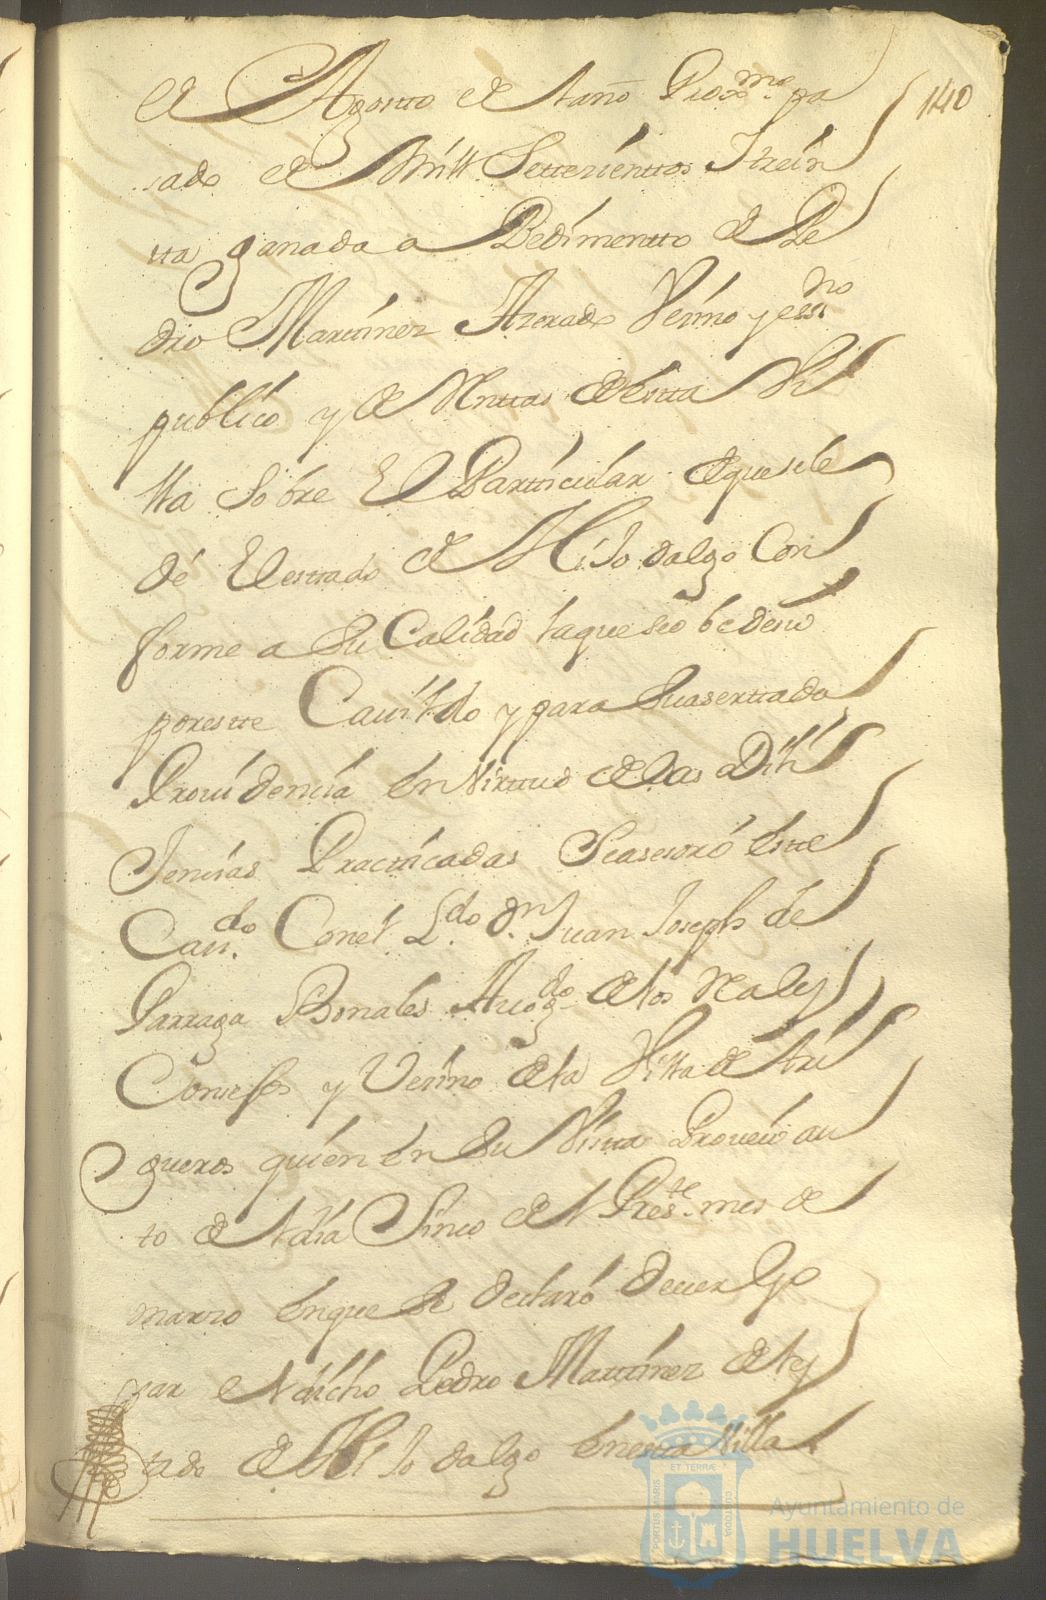 140
de Agosto de el año Proxmo. pa
sado de Mill Settecienttos Trein
tta ganada a Pedimentto de Pe
dro Marttinez Azerado Vezino y essno
publico y de Renttas de estta Vi
lla Sobre El Partticular de que se le
dé El estado de Hijo dalgo Con
forme a Su Calidad la que se obedeció
por estte Cavildo y para Su asertada
Providencia en Virttud de las Dili
Jencias Practticadas Se asesoró estte
Cavdo. Con el Ldo. Dn. Juan Joseph de
Parraga Bonales Avogdo. de los Rales
Consejos y Vezino de la Villa de Tri
gueros quien en Su Vista Proveió au
to de el dia Sinco de el Preste. mes de
marzo en que Se declaró dever go
zar el dicho Pedro Marttinez de el es
tado de Hijo dalgo en esta Villa
PORTUS MARIS
ET TERRAE
CUSTODIA
Ayuntamiento de
HUELVA